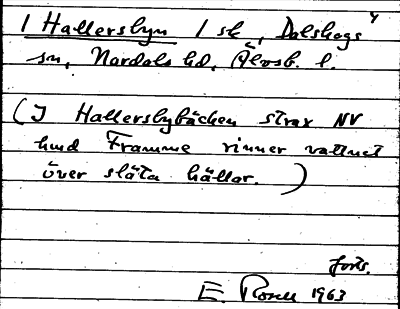 I Hallersbyn I sk, Dalskogs
sn, Nordals hd, Älvsb. l.
(I Hallersbybäcken strax NV
hmd Framme rinner vattnet
över släta hällar.)
forts.
E. Rosell 1963